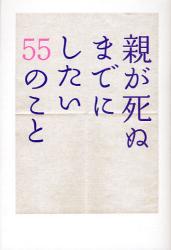 親が死ぬ
までに
したい
55のこと